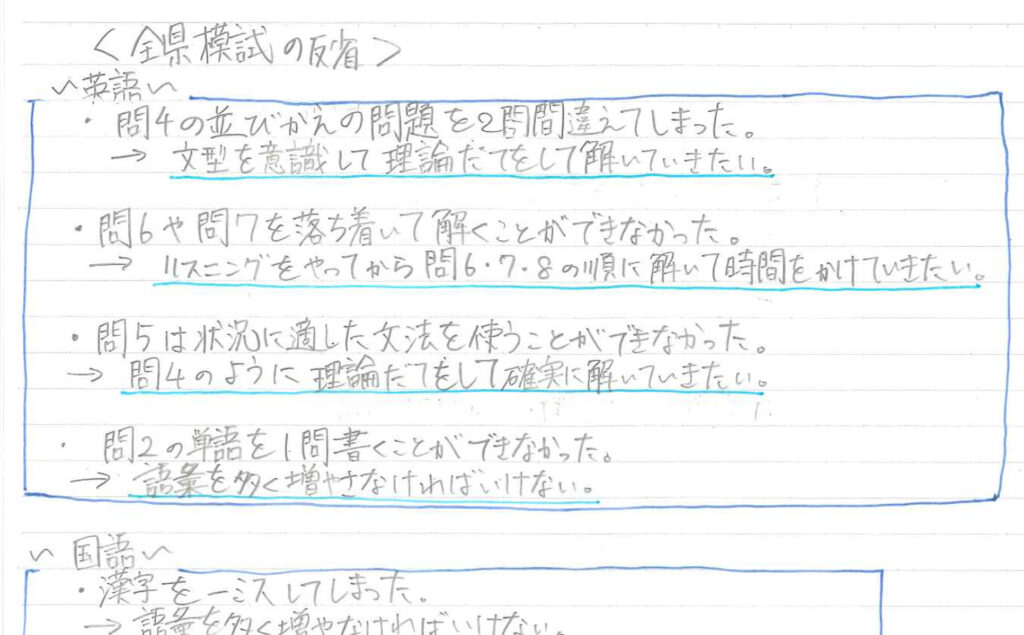 ＜全県模試の反省＞
〜英語〜
・問4の並びかえの問題を2問間違えてしまった。
→ 文型を意識して理論だてをして解いていきたい。
・問6や問7を落ち着いて解くことができなかった。
→ リスニングをやってから問6・7・8の順に解いて時間をかけていきたい。
・問5は状況に適した文法を使うことができなかった。
→ 問4のように理論だてをして確実に解いていきたい。
・問2の単語を1問書くことができなかった。
→ 語彙を多く増やさなければいけない。
〜国語〜
・漢字を一ミスしてしまった。
→ 語彙を多く増やなければいけない。